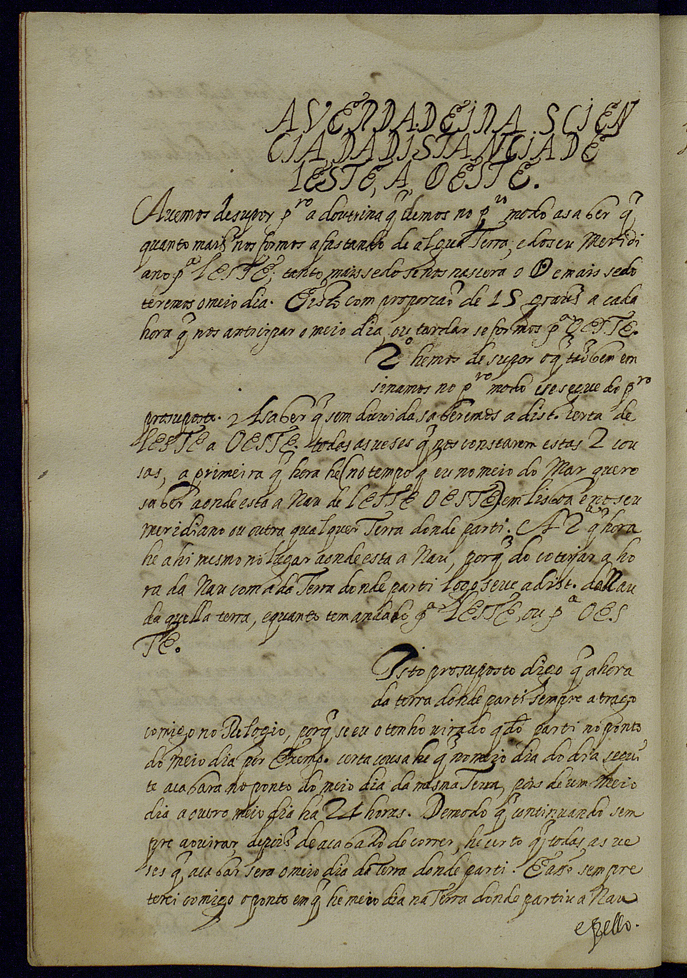 A VERDADEIRA SCIEN
CIA DA DISTANCIA DE
LESTE, A OESTE.
Auemos de supor p.ro a doutrina q̃ demos no p.ro modo a saber q̃
quanto mais nos formos afastando de algũa Terra, e do seu Meridi
ano p.a LESTE, tanto mais sedo se nos nascera o O e mais sedo
teremos o meio dia. E isto com proporcaõ de 15 graus a cada
hora q̃ nos anticipar o meio dia ou tardar se formos p.a OESTE.
2o hemos de supor o q̃ taõbem en
sinamos no p.ro modo e se segue do p.ro
prosuposto. 2 A saber q̃ sem duuida saberemos a dist. certa de
LESTE a OESTE todas as ueses q̃ nos constarem estas 2 cou
sas, a primeira q̃ hora he (no tempo q̃ eu no meio do Mar quero
saber aonde esta a Nau de LESTE OESTE) em lisboa e no seu
meridiano ou outra qualquer Terra donde parti. A 2a q̃ hora
he ahi mesmo no lugar aonde esta a Nau, porq̃ do cotejar a ho
ra da Nau com a da Terra donde parti logo se ue a dist. da Nau
da quella terra, e quanto tem andado p.a LESTE, ou p.a OES
TE.
Isto prosuposto digo q̃ a hora
da terra donde parti sempre a trago
comigo no Relogio, porq̃ se eu o tenho uirado q̃do parti no ponto
do meio dia por Exemp. certa cousa he q̃ no meio dia do dia segui
te acabara no ponto do meio dia da mesma Terra, pois de um Meio
dia a outro meio dia ha 24 horas. De modo q̃ continuando sem
pre a uirar depois de acabado de correr, he certo q̃ todas as ue
ses q̃ acabar sera o meio dia da Terra donde parti. E assi sempre
terei comigo o ponto em q̃ he meio dia na Terra donde partiu a Nau
e pello.